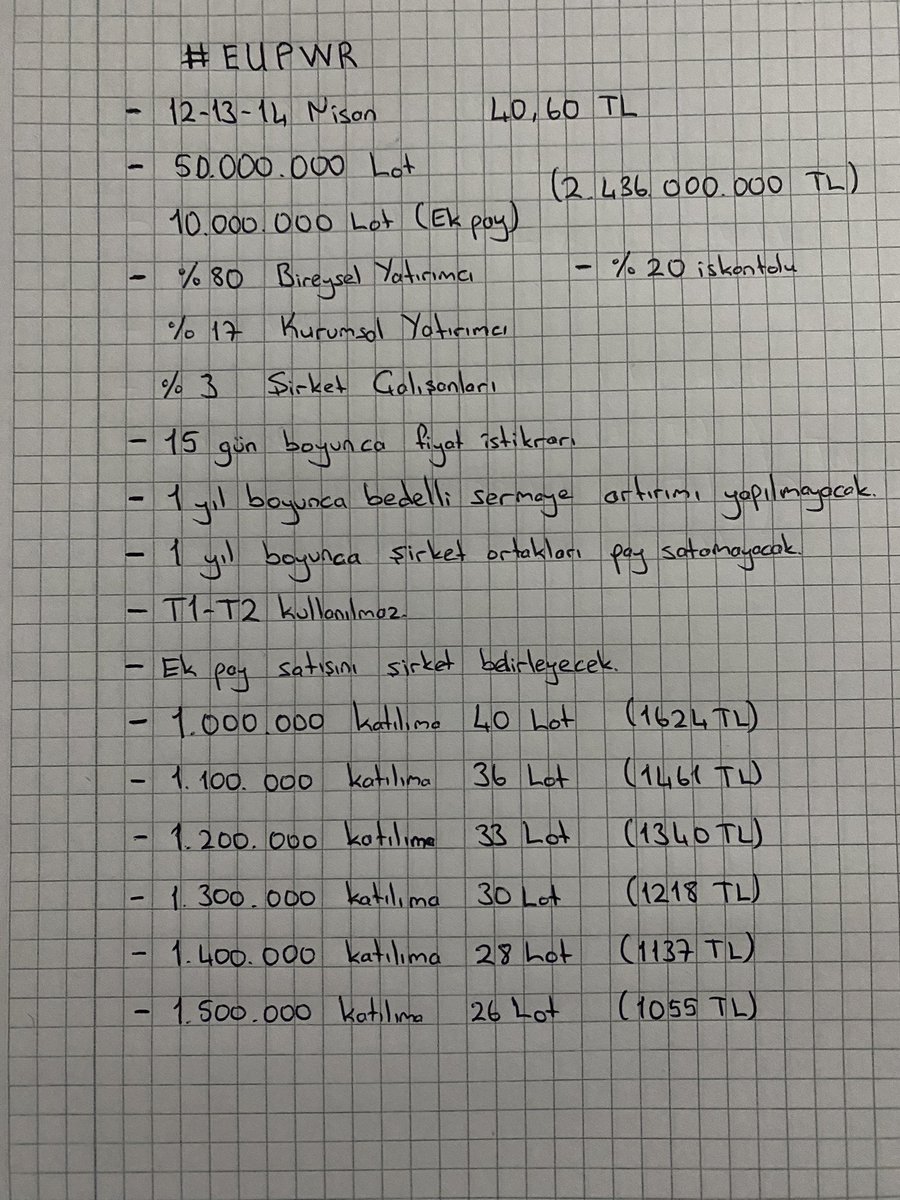 #EUPWR
- 12-13-14 Nisan 40,60 TL
- 50.000.000 Lot
(2.436.000.000 TL)
10.000.000 Lot (Ek pay)
- %80 Bireysel Yatırımcı - %20 iskontolu
%17 Kurumsal Yatırımcı
%3 Şirket Çalışanları
- 15 gün boyunca fiyat istikrarı
- 1 yıl boyunca bedelli sermaye artırımı yapılmayacak.
- 1 yıl boyunca şirket ortakları pay satamayacak.
- T1-T2 kullanılmaz.
- Ek pay satışını şirket belirleyecek.
- 1.000.000 katılıma 40 Lot (1624 TL)
- 1.100.000 katılıma 36 Lot (1461 TL)
- 1.200.000 katılıma 33 Lot (1340 TL)
- 1.300.000 katılıma 30 Lot (1218 TL)
- 1.400.000 katılıma 28 Lot (1137 TL)
- 1.500.000 katılıma 26 Lot (1055 TL)